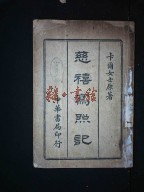 卡爾女士原著
慈禧寫照記
中華書局印行